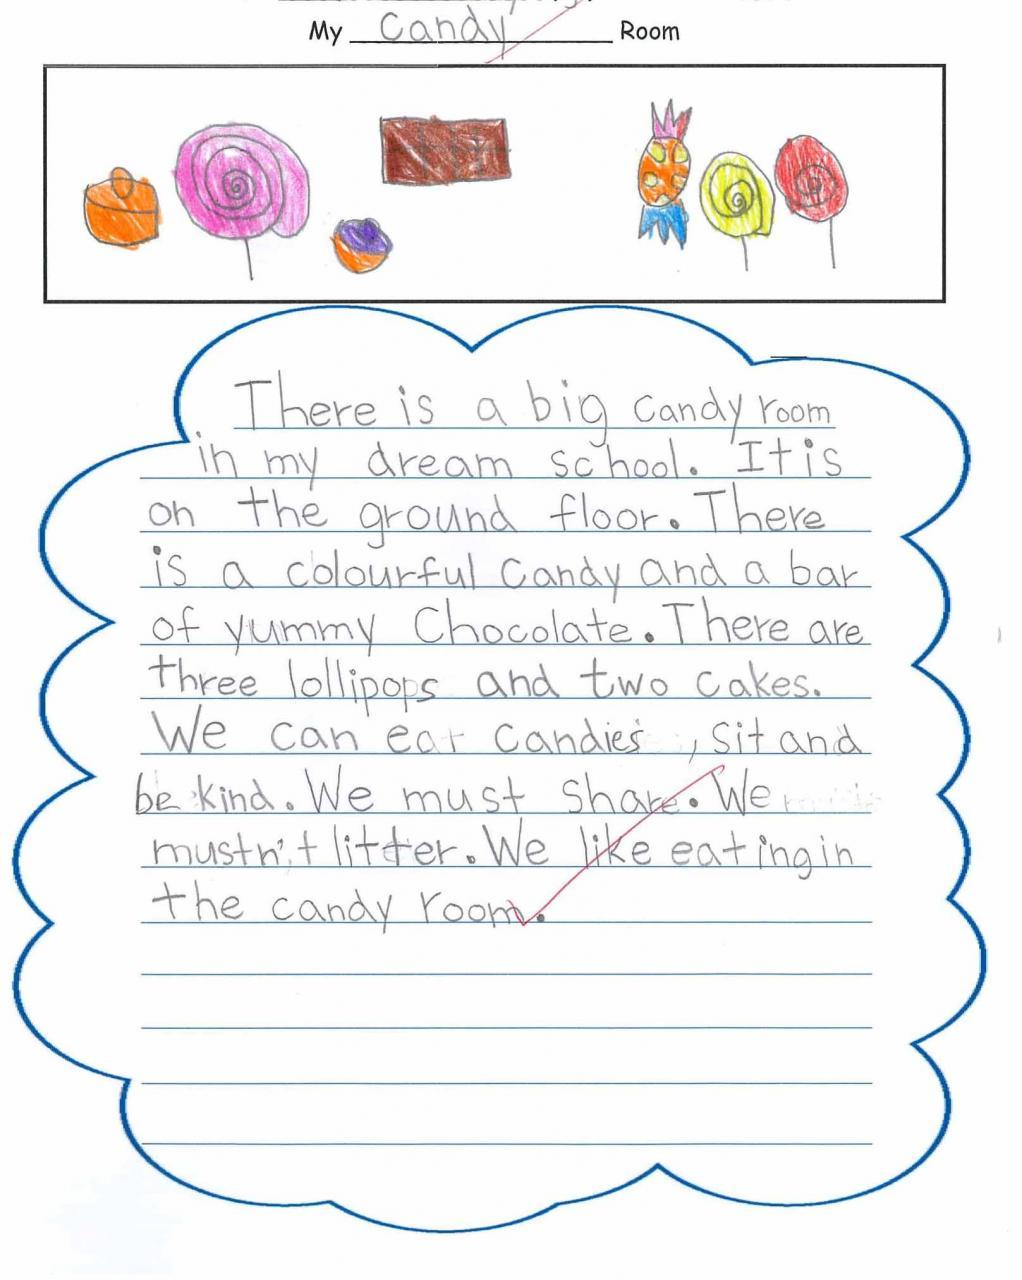 My Candy Room
There is a big candy room
in my dream school. It is
on the ground floor. There
is a colourful candy and a bar
of yummy Chocolate. There are
three lollipops and two cakes.
We can eat candies, sit and
be kind. We must share. We
mustn't litter. We like eating in
the candy room.